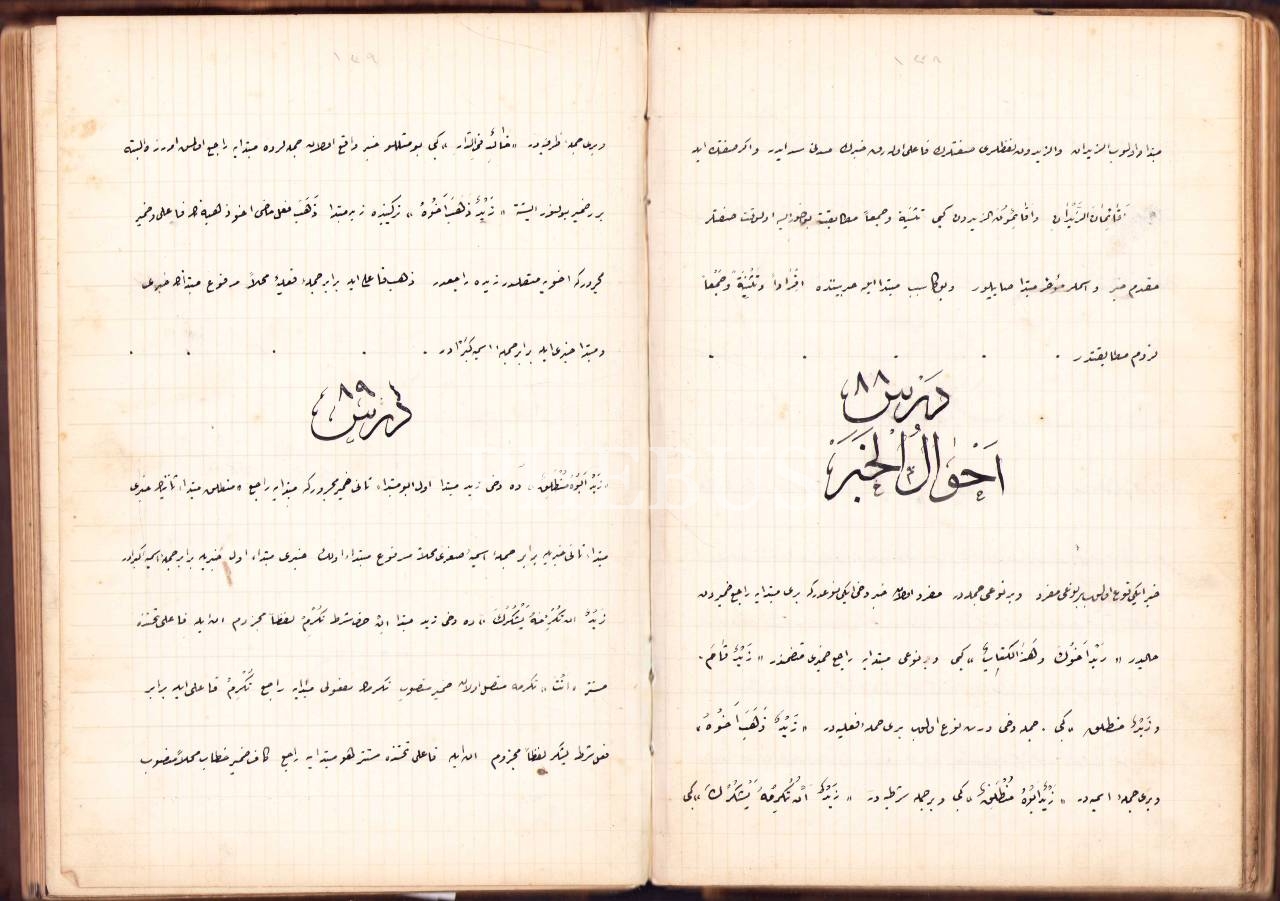 ١٣٨
مبتدا اولوب الزیدان والزیدون لفظلری صفتلرك فاعلی اوله رق خبرك مسدی سد ایدر واكر صفتك ایله
أقائمان الزَّيْدَانِ واقائِمُونَ الزيدون كبی تثنیة وجمعاً مطابقت اولوقت صفتلر
مقدم خبر واسملر مؤخر مبتدا صاییلیور وبوكا سبب مبتدا ایله خبر بیننده افراداً وتَثْنِيَةً وجَمْعاً
لزوم مطابقتدر
دَرْس ٨٨
اَحْوَالُ الْخَبَرْ
خبر ایكی نوع اولوب بر نوعی مفرد وبر نوعی جمله در مفرد اولان خبر دخی ایكی نوعدركه بری مبتدایه راجع ضمیردن
خالیدر « زَيْدٌ اَخُوكَ وهَذَا الكِتَابُ » كبی وبر نوعی مبتدایه راجع ضمیری متضمندر « زَيْدٌ قَامَ .
وزَيْدٌ منطلق » كبی . جمله دخی درت نوع اولوب بری جمله فعلیه در « زَيْدٌ ذَهَبَ اَخُوهُ »
وبری جملهٔ اسمیه در « زَيْدٌ اَبُوهُ مُنْطَلِقٌ » كبی وبری جمله شرطیه در « زَيْدٌ اِنْ تُكْرِمْهُ يَشْكُرْكَ » كبی
١٣٩
وبری جملهٔ ظرفیه در « خالد في الدار » كبی بو مثللو خبر واقع اولان جمله لرده مبتدایه راجع اولمق اوزره البته
بر ضمیر بولنور البتة « زَيْدٌ ذَهَبَ اَخُوهُ » تركیبنده زید مبتدا ذَهَبَ فعل ماضی اخو ذهبه نك فاعلی وضمیر
مجروركه اخویه متصلدر زیده راجعدر ذهب فاعلی ایله برابر جملهٔ فعلیه محلاً مرفوع مبتدانك خبری
ومبتدا خبری ایله برابر جملهٔ اسمیه كُبْرٰا در .
دَرْس ٨٩
« زَيْدٌ اَبُوهُ مُنْطَلِقٌ » ده دخی زید مبتدا اول ابو مبتداء ثانی ضمیر مجروركه مبتدایه راجع « منطلق مبتداء ثانینك خبری
مبتداء ثانی خبریله برابر جملهٔ اسمیهٔ صغری محلاً مرفوع مبتداء اولك خبری مبتداء اول خبریله برابر جملهٔ اسمیه كبرادر
زَيْدٌ اِنْ تُكْرِمْهُ يَشْكُرْكَ » ده دخی زید مبتدا اِنْ حرف شرط تُكْرِمْ لفظاً مجزوم ان ایله فاعلی تحتنده
مستتر « انت » تكرمه متصل اولان ضمیر منصوب تكرمك مفعولی مبتدایه راجع تُكْرِمْ فاعلی ایله برابر
فعل شرط یشكر لفظاً مجزوم ان ایله فاعلی تحتنده مستتر هو مبتدایه راجع كاف ضمیر خطاب محلاً منصوب